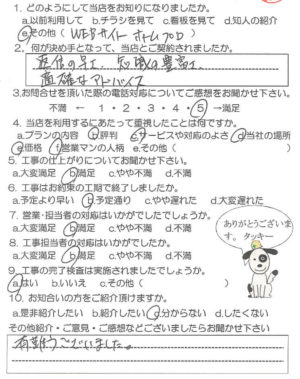 1. どのようにして当店をお知りになりましたか。
a.以前利用して b.チラシを見て c.看板を見て d.知人の紹介
eその他( WEBサイト ホームプロ )
2. 何が決め手となって、当店とご契約されましたか。
返信の早さ、知識の豊富さ、
適確なアドバイス
3.お問合せを頂いた際の電話対応についてご感想をお聞かせ下さい。
不満 ← 1・2・3・4・5 →満足
4. 当店を利用するにあたって重視したことは何ですか。
a.プランの内容 b評判 cサービスや対応のよさ d当社の場所
e価格 f営業マンの人柄 e.その他( )
5. 工事の仕上がりについてお聞かせ下さい。
a.大変満足 b満足 c.やや不満 d.不満
6. 工事はお約束の工期で終了しましたか。
a.予定より早い b予定通り c.やや遅れた d.大変遅れた
7. 営業・担当者の対応はいかがでしたでしょうか。
a.大変満足 b満足 c.やや不満 d.不満
8. 工事担当者の対応はいかがでしたか。
a.大変満足 b満足 c.やや不満 d.不満
9. 工事の完了検査は実施されましたでしょうか。
aはい b.いいえ c.その他( )
10. お知合いの方をご紹介頂けますか。
a.是非紹介したい b.紹介したい c分からない d.したくない
その他紹介・ご意見・ご感想などございましたらお聞かせ下さい
有難うございました。
ありがとうございま
す。 タッキー